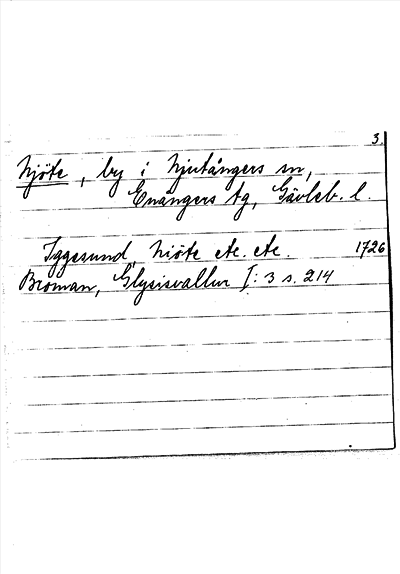 3.
Njöte, by i Njutångers sn,
Enångers tg, Gävleb. l.
Iggesund, Niöte etc. etc. 1726
Broman, Glysisvallur I: 3 s. 214